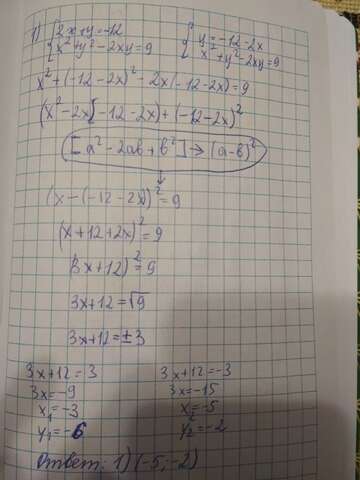 1) { 2x+y=-12    { y=-12-2x
{ x²+y²-2xy=9    { x²+y²-2xy=9
x²+(-12-2x)²-2x(-12-2x)=9
(x²-2x)(-12-2x)+(-12-2x)²
[a²-2ab+b²]→(a-b)²
↓
(x-(-12-2x))²=9
(x+12+2x)²=9
(3x+12)²=9
3x+12=√9
3x+12=±3
3x+12=3    3x+12=-3
3x=-9    3x=-15
x₁=-3    x₂=-5
y₁=-6    y₂=-2
Ответ: 1) (-5;-2)